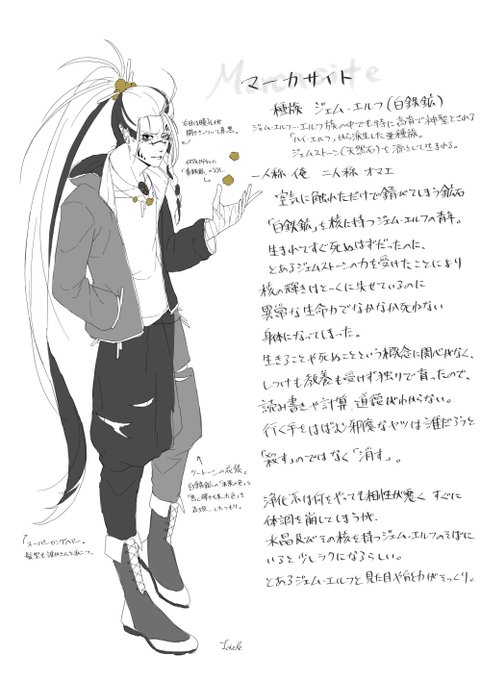 Marcasite
マーカサイト
種族 ジェム・エルフ(白鉄鉱)
ジェム・エルフ…エルフ族の中でも特に高貴で神聖とされる
「ハイ・エルフ」から派生した亜種族。
ジェムストーン(天然石)を源として生まれる。
一人称 俺 二人称 オマエ
空気に触れただけで錆びてしまう鉱石
「白鉄鉱」を核に持つジェム・エルフの青年。
生まれてすぐ死ぬはずだったのに、
とあるジェムストーンの力を受けたことにより
核の輝きはとーくに失せているのに
異常な生命力でなかなか死ねない
身体になってしまった。
生きることや死ぬことという概念に関心がなく、
しつけも教養も受けず独りで育ったので、
読み書きや計算、道徳がわからない。
行く手をはばむ邪魔なヤツは誰だろうと
「殺す」のではなく「消す」。
浄化系は何をやっても相性が悪く すぐに
体調を崩してしまうが、
水晶及びその核を持つジェム・エルフのそばに
いると少しラクになるらしい。
とあるジェム・エルフと見た目や能力がそっくり。
ツートーンの衣装。
白鉄鉱の
「スーパーロングヘアー。